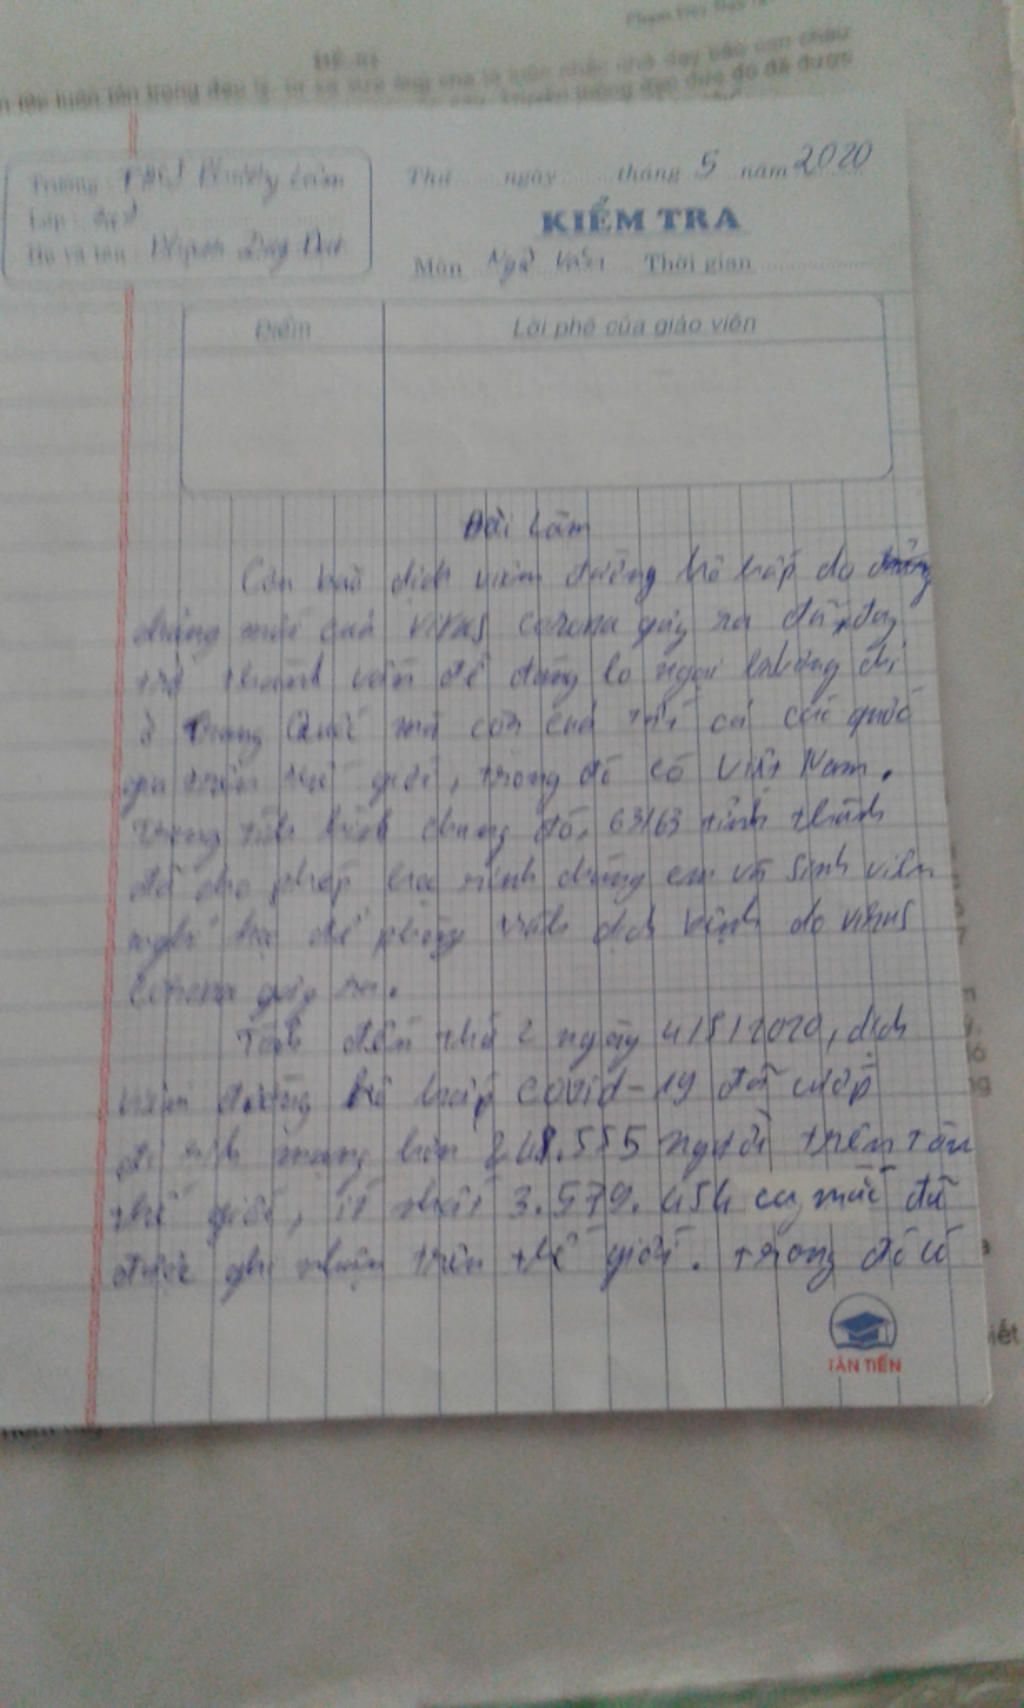 ĐỀ 01
Trường
Lớp
Họ và tên
Thứ ngày tháng 5 năm 2020
KIỂM TRA
Môn Ngữ Văn Thời gian
Điểm
Lời phê của giáo viên
Bài Làm
Cơn bão dịch viêm đường hô hấp do
chủng mới của virus corona gây ra đã, đang
trở thành vấn đề đáng lo ngại không chỉ
ở Trung Quốc mà còn của tất cả các quốc
gia trên thế giới, trong đó có Việt Nam.
Trong tình hình chung đó, 63/63 tỉnh thành
đã cho phép học sinh chúng em và sinh viên
nghỉ học để phòng tránh dịch bệnh do virus
corona gây ra.
Tính đến thứ 2 ngày 4/5/2020, dịch
viêm đường hô hấp covid-19 đã cướp
đi sinh mạng hơn 248.555 người trên toàn
thế giới, ít nhất 3.579.454 ca mắc đã
được ghi nhận trên thế giới. Trong đó có
TÂN TIẾN